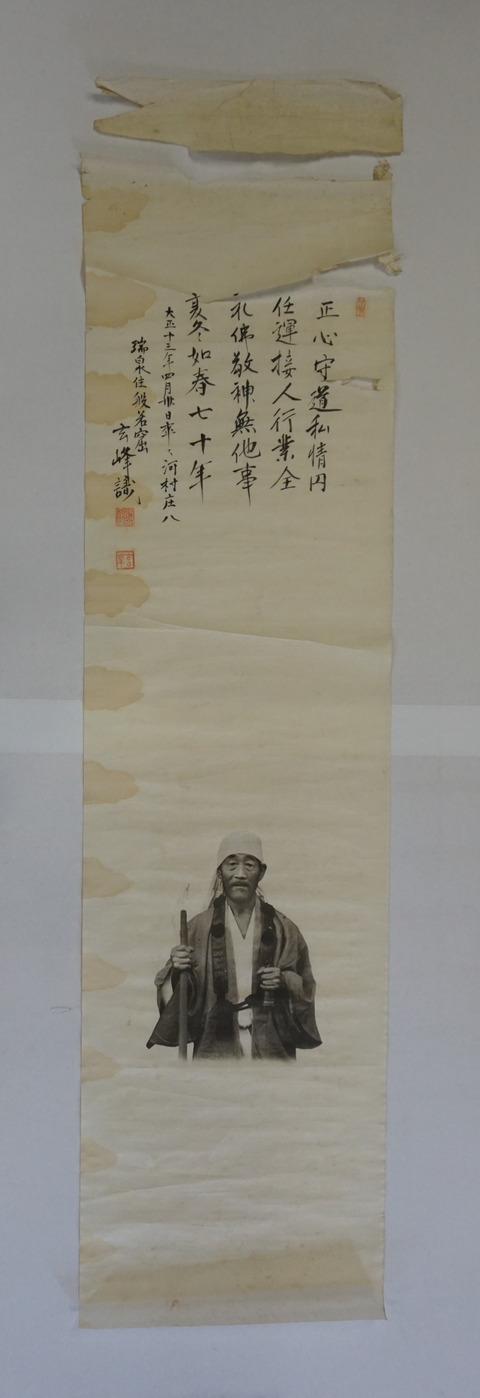 正心守道私情円
任運接人行業全
礼佛敬神無他事
夏冬如春七十年
大正十三年四月卅日
河村庄八
瑞泉住般若窟
玄峰識